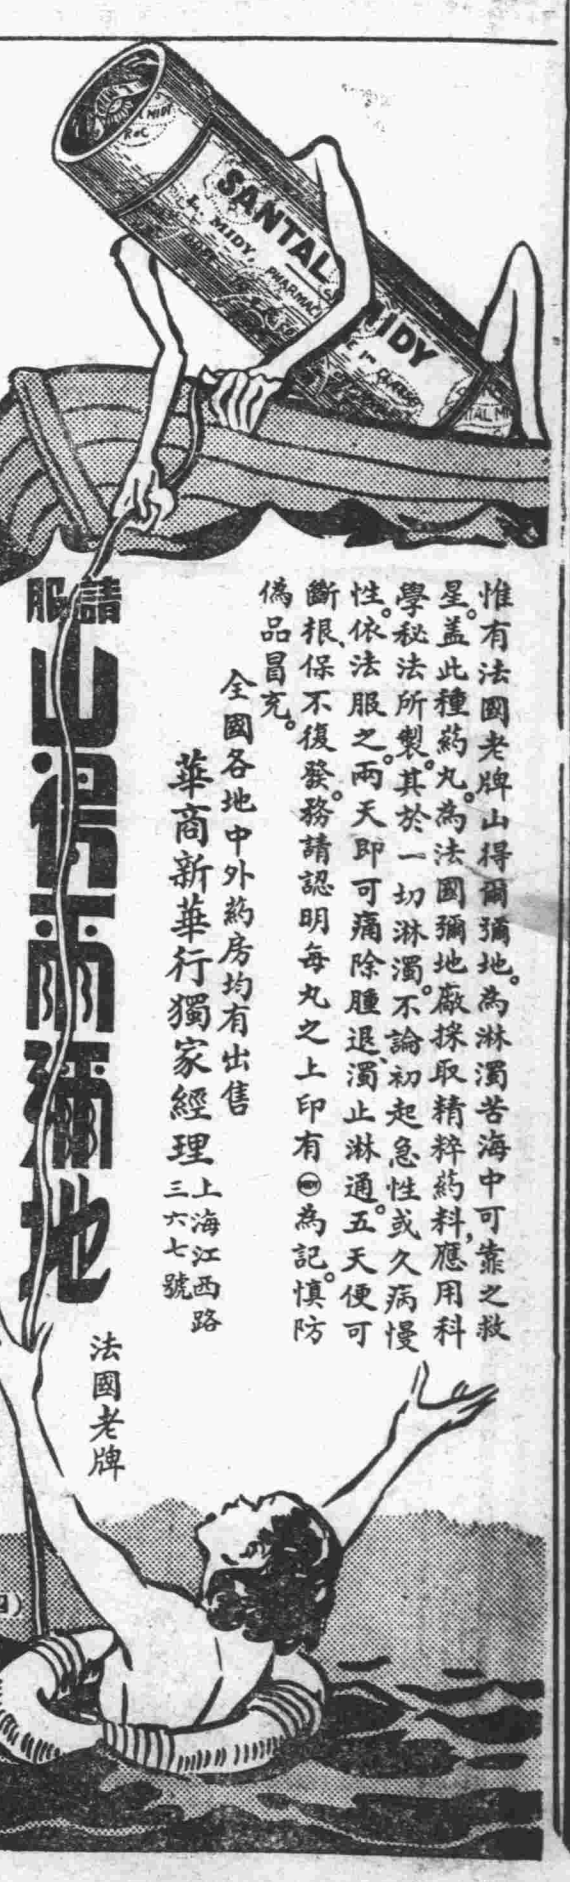 SANTAL MIDY
L. MIDY, PHARMACI
惟有法國老牌山得爾彌地。為淋濁苦海中可靠之救
星。蓋此種葯丸。為法國彌地廠採取精粹葯料,應用科
學秘法所製。其於一切淋濁。不論初起急性或久病慢
性。依法服之。兩天即可痛除腫退、濁止淋通。五天便可
斷根、保不復發。務請認明每丸之上印有MIDY為記。慎防
偽品冒充。
全國各地中外葯房均有出售
華商新華行獨家經理
上海江西路
三六七號
請服
山得爾彌地
法國老牌